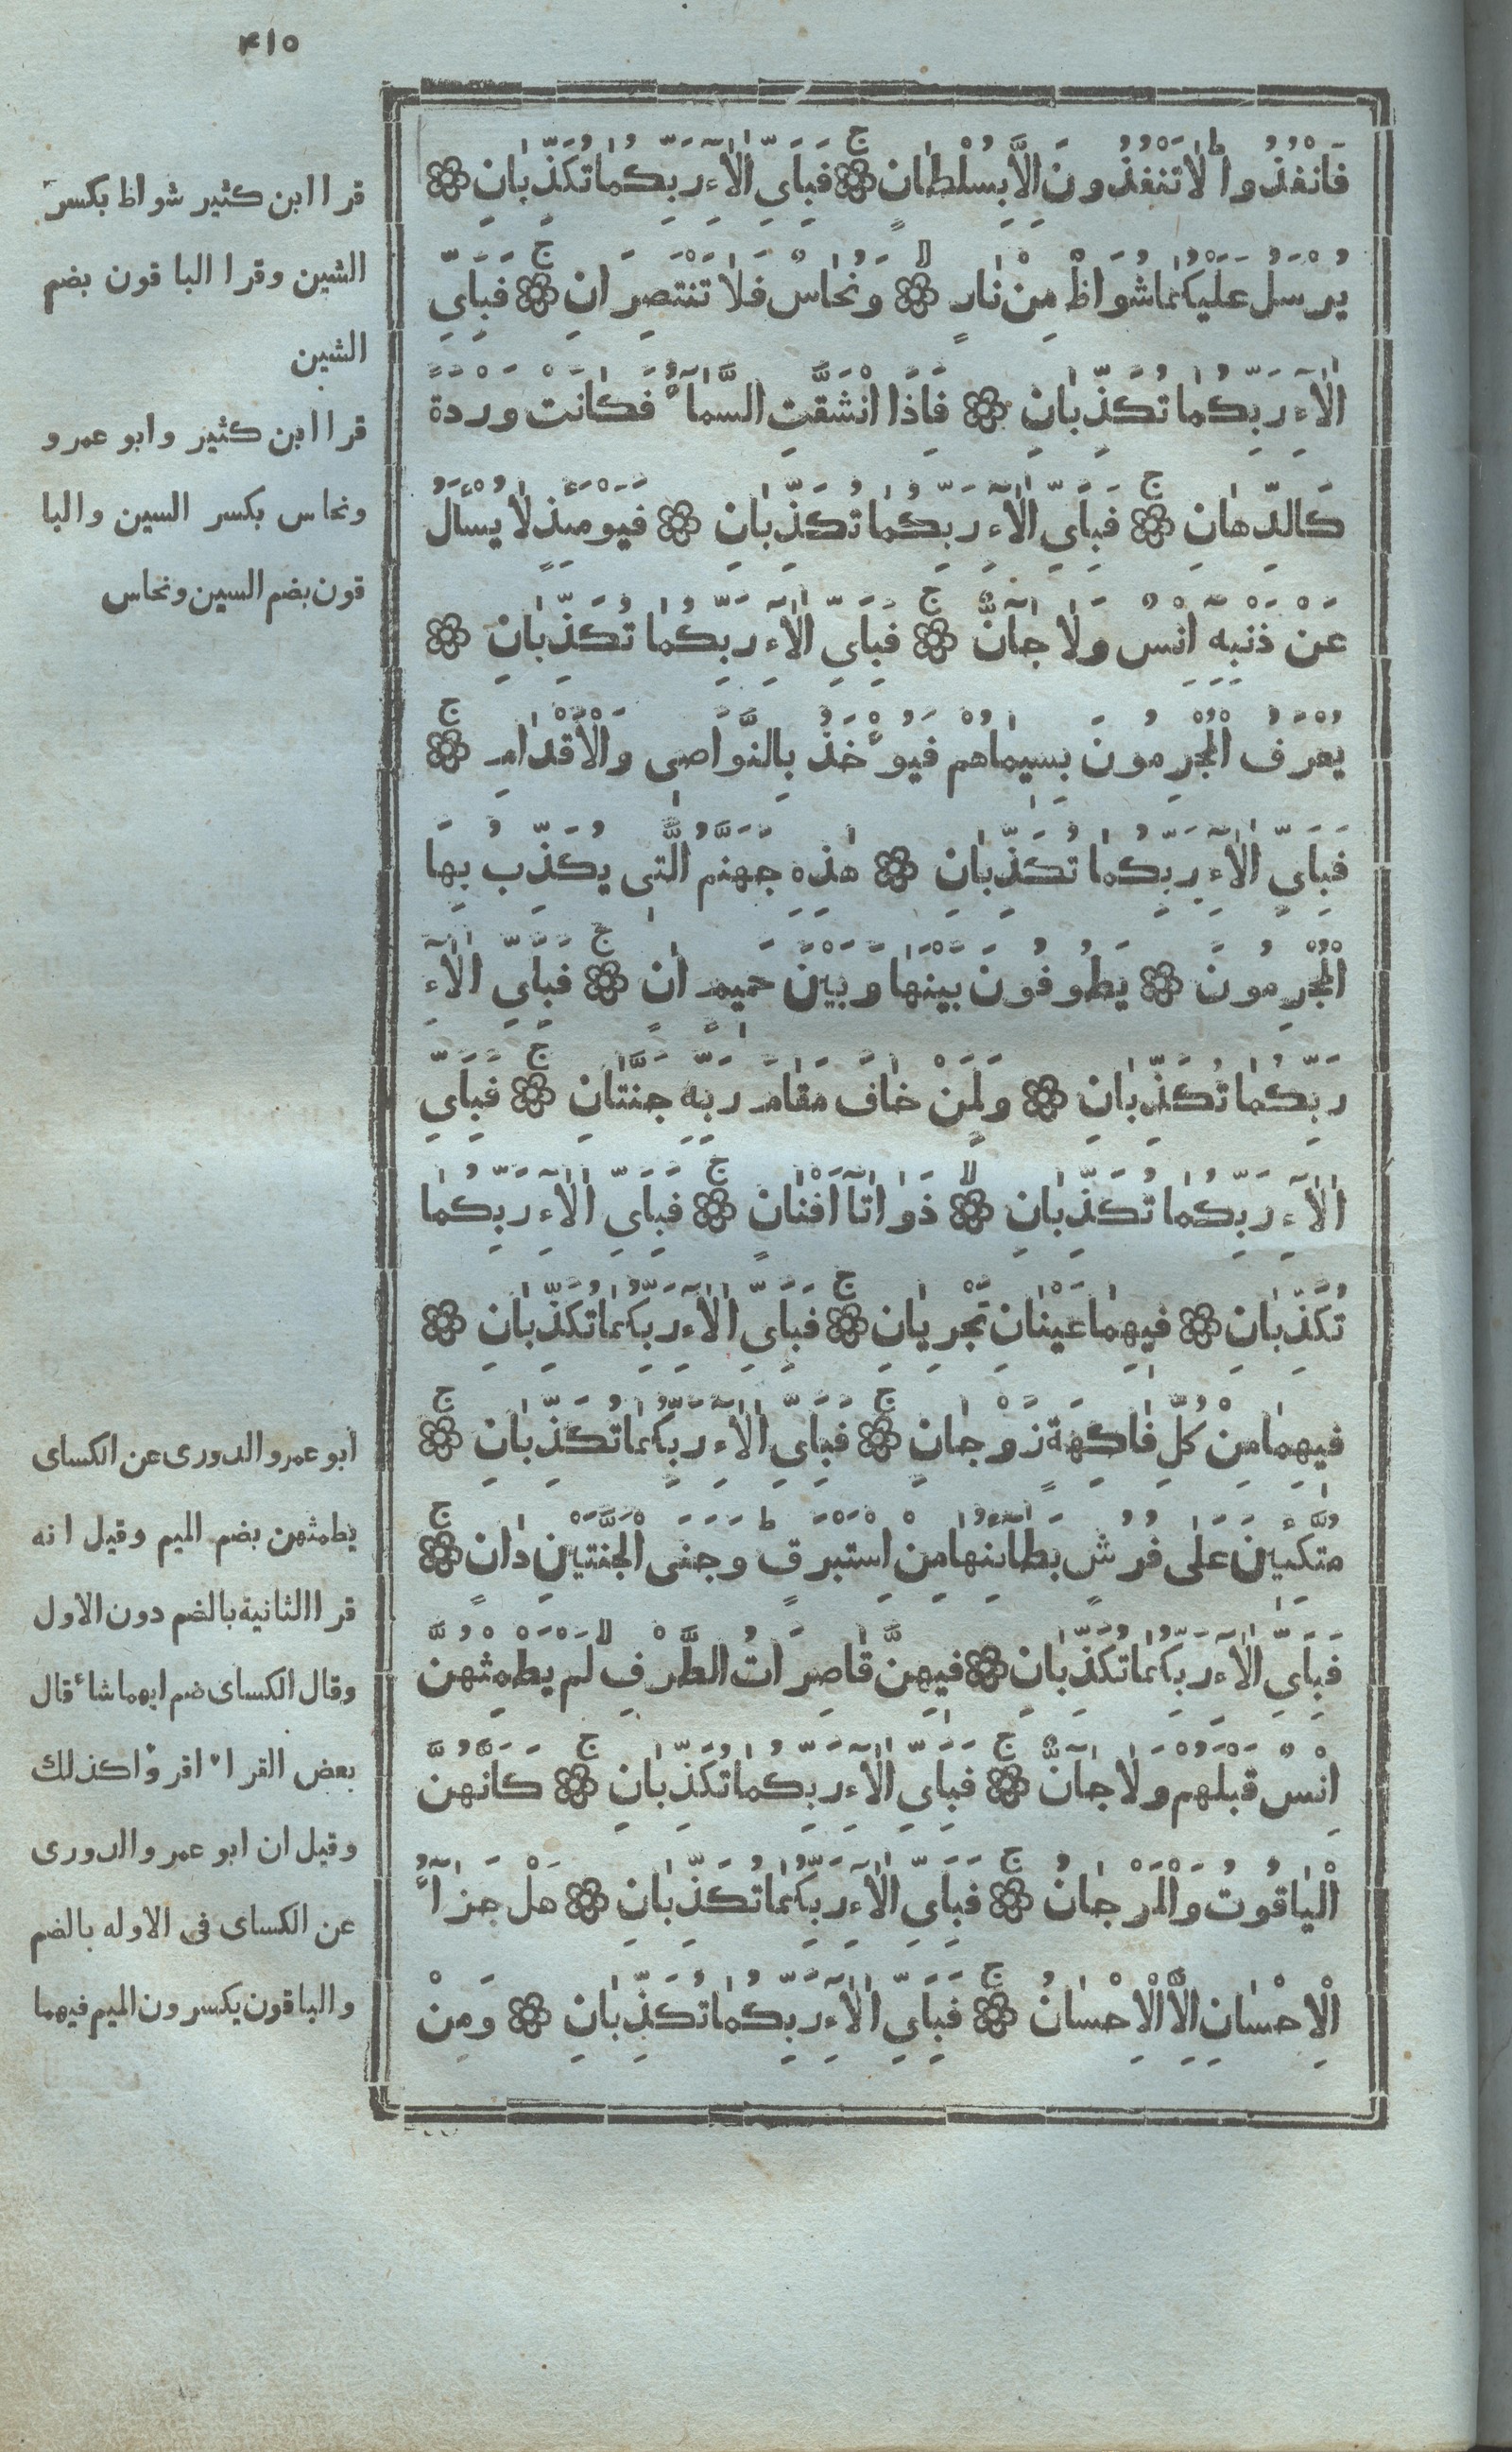 ٤١٥
فَانْفُذُوا ط لَا تَنْفُذُونَ اِلَّا بِسُلْطٰانٍ ج فَبِاَيِّ اٰلَاۤءِ رَبِّكُمٰا تُكَذِّبٰانِ
يُرْسَلُ عَلَيْكُمٰا شُوَاظٌ مِنْ نٰارٍ لا وَنُحٰاسٌ فَلٰا تَنْتَصِرٰانِ ج فَبِاَيِّ
اٰلَاۤءِ رَبِّكُمٰا تُكَذِّبٰانِ فَاِذَا انْشَقَّتِ السَّمٰاۤءُ فَكٰانَتْ وَرْدَةً
كَالدِّهٰانِ ج فَبِاَيِّ اٰلَاۤءِ رَبِّكُمٰا تُكَذِّبٰانِ فَيَوْمَئِذٍ لٰا يُسْأَلُ
عَنْ ذَنْبِهِ اِنْسٌ وَلٰا جٰاۤنٌّ ج فَبِاَيِّ اٰلَاۤءِ رَبِّكُمٰا تُكَذِّبٰانِ
يُعْرَفُ الْمُجْرِمُونَ بِسِيمٰاهُمْ فَيُؤْخَذُ بِالنَّوَاصِي وَالْاَقْدٰامِ ج
فَبِاَيِّ اٰلَاۤءِ رَبِّكُمٰا تُكَذِّبٰانِ هٰذِهِ جَهَنَّمُ الَّتِي يُكَذِّبُ بِهَا
الْمُجْرِمُونَ يَطُوفُونَ بَيْنَهٰا وَبَيْنَ حَمِيمٍ اٰنٍ ج فَبِاَيِّ اٰلَاۤءِ
رَبِّكُمٰا تُكَذِّبٰانِ وَلِمَنْ خٰافَ مَقٰامَ رَبِّهِ جَنَّتٰانِ ج فَبِاَيِّ
اٰلَاۤءِ رَبِّكُمٰا تُكَذِّبٰانِ لا ذَوٰاتٰاۤ اَفْنٰانٍ ج فَبِاَيِّ اٰلَاۤءِ رَبِّكُمٰا
تُكَذِّبٰانِ فِيهِمٰا عَيْنٰانِ تَجْرِيٰانِ ج فَبِاَيِّ اٰلَاۤءِ رَبِّكُمٰا تُكَذِّبٰانِ
فِيهِمٰا مِنْ كُلِّ فٰاكِهَةٍ زَوْجٰانِ ج فَبِاَيِّ اٰلَاۤءِ رَبِّكُمٰا تُكَذِّبٰانِ ج
مُتَّكِئِينَ عَلَى فُرُشٍ بَطٰاۤئِنُهٰا مِنْ اِسْتَبْرَقٍ ط وَجَنَى الْجَنَّتَيْنِ دٰانٍ ج
فَبِاَيِّ اٰلَاۤءِ رَبِّكُمٰا تُكَذِّبٰانِ فِيهِنَّ قٰاصِرَاتُ الطَّرْفِ لا لَمْ يَطْمِثْهُنَّ
اِنْسٌ قَبْلَهُمْ وَلٰا جٰاۤنٌّ ج فَبِاَيِّ اٰلَاۤءِ رَبِّكُمٰا تُكَذِّبٰانِ ج كَاَنَّهُنَّ
الْيٰاقُوتُ وَالْمَرْجٰانُ ج فَبِاَيِّ اٰلَاۤءِ رَبِّكُمٰا تُكَذِّبٰانِ هَلْ جَزٰاۤءُ
الْاِحْسٰانِ اِلَّا الْاِحْسٰانُ ج فَبِاَيِّ اٰلَاۤءِ رَبِّكُمٰا تُكَذِّبٰانِ وَمِنْ
قرا ابن كثير شواظ بكسر
الشين وقرا البا قون بضم
الشين
قرا ابن كثير وابو عمرو
ونحاس بكسر السين والبا
قون بضم السين ونحاس
ابو عمرو الدورى عن الكساى
يطمثهن بضم الميم وقيل انه
قرا الثانية بالضم دون الاول
وقال الكساى ضم ايهما شاء قال
بعض القراء اقرؤا كذلك
وقيل ان ابو عمر والدورى
عن الكساى فى الاوله بالضم
والباقون يكسرون الميم فيهما